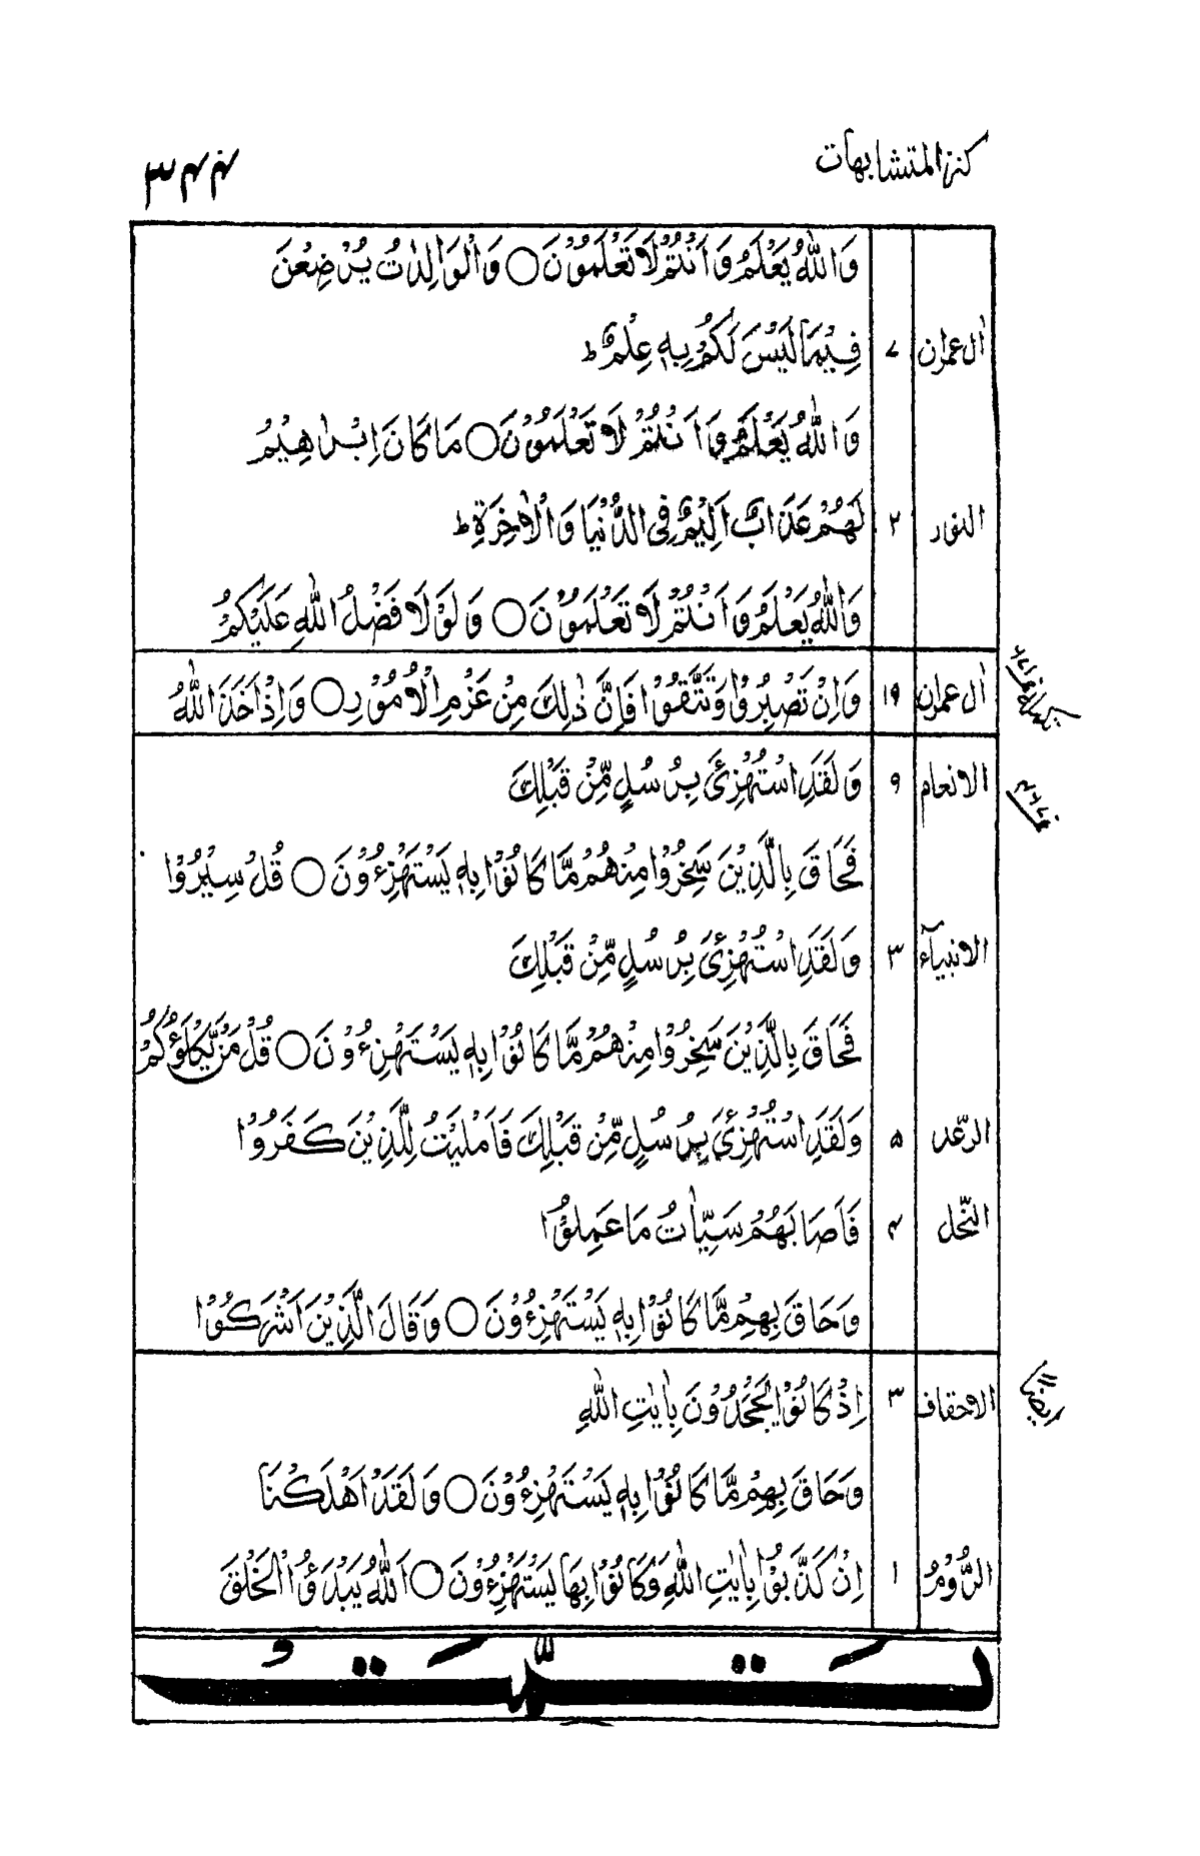 كنز المتشابهات
۳۴۴
وَاللّٰهُ يَعْلَمُ وَاَنْتُمْ لَا تَعْلَمُوْنَ ○ وَالْوَالِدٰتُ يُرْضِعْنَ
اٰل عمران ۷ فِيْمَا لَيْسَ لَكُمْ بِهٖ عِلْمٌ ط
وَاللّٰهُ يَعْلَمُ وَاَنْتُمْ لَا تَعْلَمُوْنَ ○ مَا كَانَ اِبْرٰهِيْمُ
النور ۲ لَهُمْ عَذَابٌ اَلِيْمٌ فِى الدُّنْيَا وَالْاٰخِرَةِ ط
وَاللّٰهُ يَعْلَمُ وَاَنْتُمْ لَا تَعْلَمُوْنَ ○ وَلَوْلَا فَضْلُ اللّٰهِ عَلَيْكُمْ
اٰل عمران ۱۹ وَاِنْ تَصْبِرُوْا وَتَتَّقُوْا فَاِنَّ ذٰلِكَ مِنْ عَزْمِ الْاُمُوْرِ ○ وَاِذْ اَخَذَ اللّٰهُ
الانعام ۹ وَلَقَدِ اسْتُهْزِئَ بِرُسُلٍ مِّنْ قَبْلِكَ
فَحَاقَ بِالَّذِيْنَ سَخِرُوْا مِنْهُمْ مَّا كَانُوْا بِهٖ يَسْتَهْزِءُوْنَ ○ قُلْ سِيْرُوْا
الانبيآء ۳ وَلَقَدِ اسْتُهْزِئَ بِرُسُلٍ مِّنْ قَبْلِكَ
فَحَاقَ بِالَّذِيْنَ سَخِرُوْا مِنْهُمْ مَّا كَانُوْا بِهٖ يَسْتَهْزِءُوْنَ ○ قُلْ مَنْ يَّكْلَؤُكُمْ
الرّعد ۵ وَلَقَدِ اسْتُهْزِئَ بِرُسُلٍ مِّنْ قَبْلِكَ فَاَمْلَيْتُ لِلَّذِيْنَ كَفَرُوْا
النّحل ۴ فَاَصَابَهُمْ سَيِّاٰتُ مَا عَمِلُوْا
وَحَاقَ بِهِمْ مَّا كَانُوْا بِهٖ يَسْتَهْزِءُوْنَ ○ وَقَالَ الَّذِيْنَ اَشْرَكُوْا
الاحقاف ۳ اِذْ كَانُوْا يَجْحَدُوْنَ بِاٰيٰتِ اللّٰهِ
ايضاً
وَحَاقَ بِهِمْ مَّا كَانُوْا بِهٖ يَسْتَهْزِءُوْنَ ○ وَلَقَدْ اَهْلَكْنَا
الرُّوْمُ ۱ اِنْ كَذَّبُوْا بِاٰيٰتِ اللّٰهِ وَكَانُوْا بِهَا يَسْتَهْزِءُوْنَ ○ اَللّٰهُ يَبْدَؤُا الْخَلْقَ
تَمَّتْ